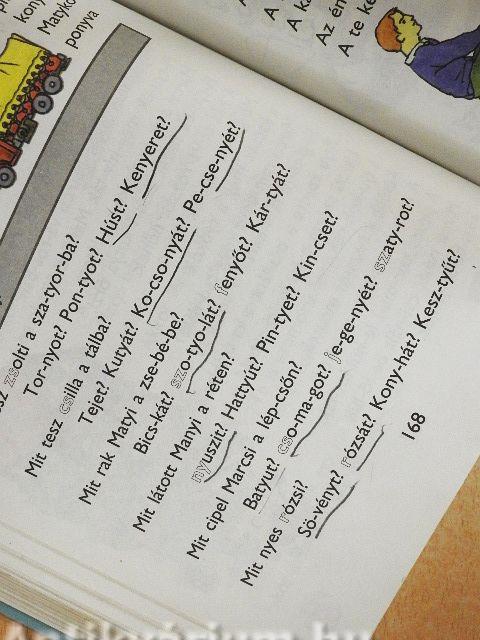 kony
Matykó
ponyva
A te ke
Az én
zsolti a sza-tyor-ba?
Tor-nyot? Pon-tyot? Húst? Kenyeret?
Mit tesz csilla a tálba?
Tejet? Kutyát? Ko-cso-nyát? Pe-cse-nyét?
Mit rak Matyi a zse-bé-be?
Bics-kát? szo-tyo-lát? fenyőt? Kár-tyát?
Mit látott Manyi a réten?
nyuszit? Hattyút? Pin-tyet? Kin-cset?
Mit cipel Marcsi a lép-csőn?
Batyut? cso-ma-got? je-ge-nyét? szaty-rot?
Mit nyes rózsi?
Sö-vényt? rózsát? Kony-hát? Kesz-tyűt?
168
Antikvárium.hu